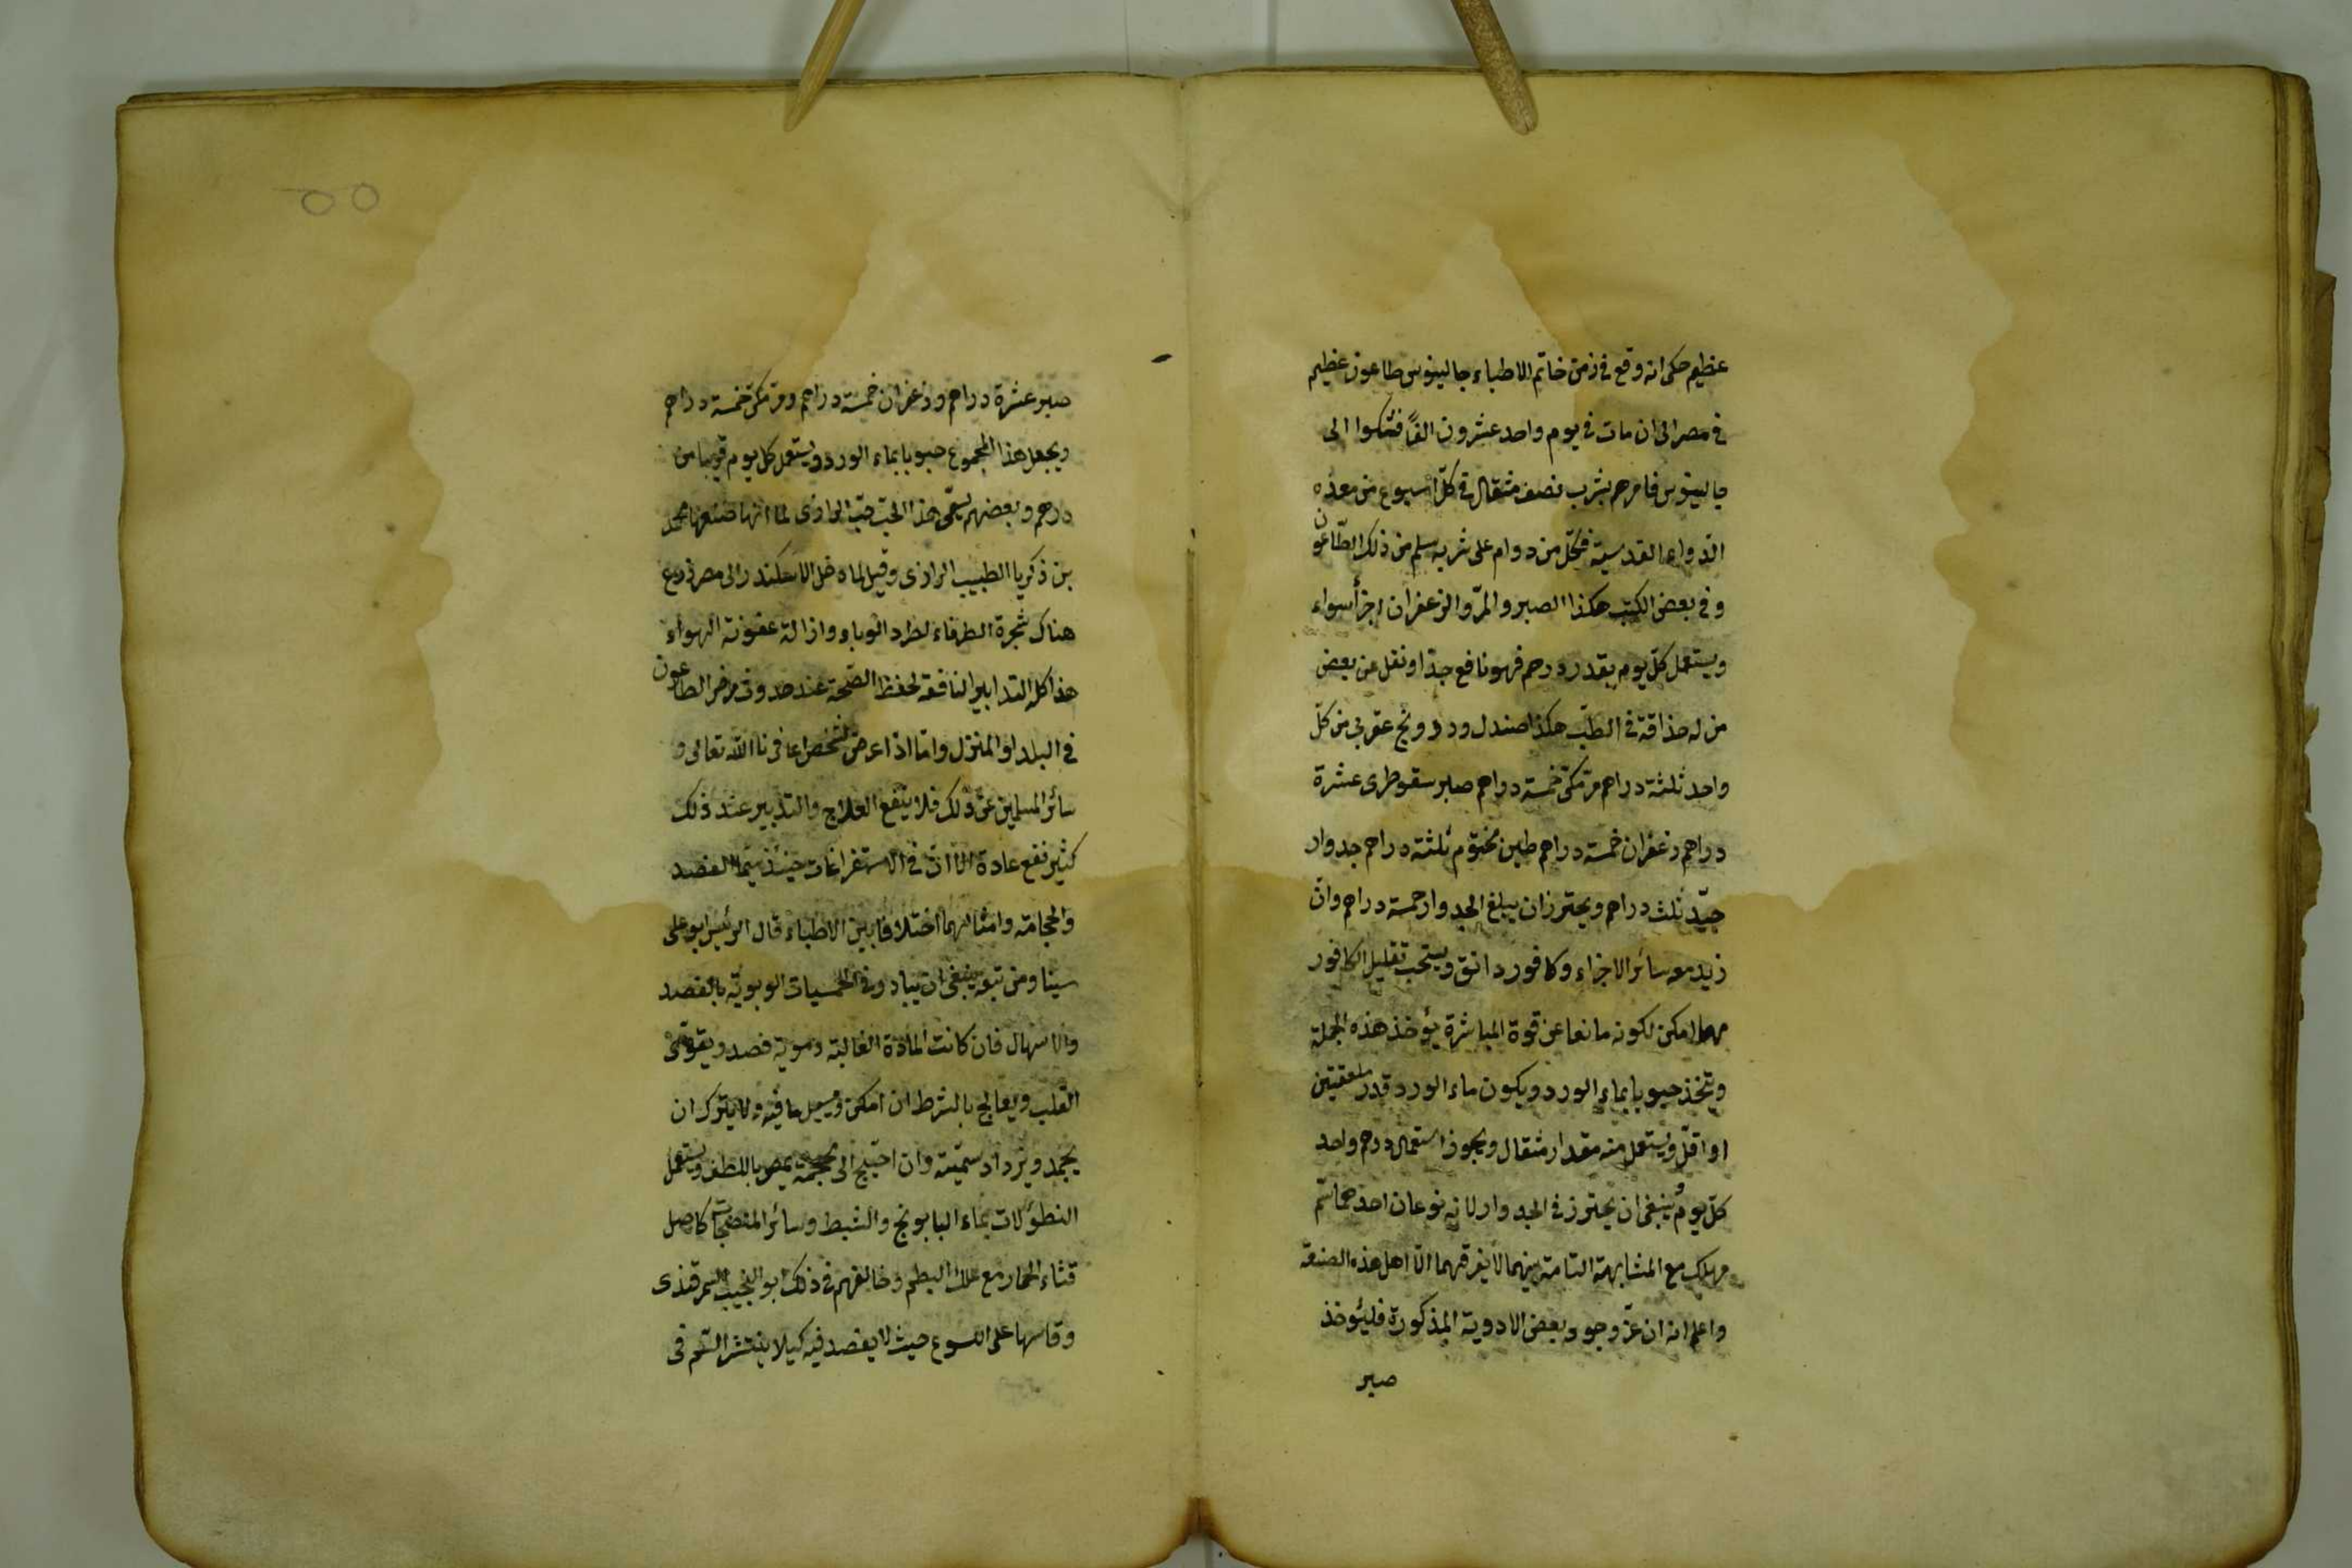 عظيم حكى انه وقع فى زمن خاتم الاطباء جالينوس طاعون عظيم
فى مصر الى ان مات فى يوم واحد عشرون الفاً فشكوا الى
جالينوس فامرهم بشرب نصف مثقال فى كلّ اسبوع من معذه
الدواء القدسية فكلّ من دوام على شربه سلم من ذلك الطّاعون
وفى بعض الكتب هكذا الصبر والمرّ والزعفران اجزأ سواء
ويستعمل كلّ يوم بقدر درهم فهو نافع جدّا ونقل عن بعض
من له حذاقة فى الطبّ هكذا صندل ودرونج عقربى من كلّ
واحد ثلثة دراهم مرّ مكّى خمسة دراهم صبر سقوطرى عشرة
دراهم زعفران خمسة دراهم طين مختوم ثلثة دراهم جدوار
جيّد ثلث دراهم ويحترز ان يبلغ الجدوار خمسة دراهم وان
زيد معه سائر الاجزاء وكافور دانق ويستحب تقليل الكافور
مهما امكن لكونه مانعا عن قوة المباشرة يؤخذ هذه الجملة
ويتخذ حبوبا بماء الورد ويكون ماء الورد قدر ملعقتين
او اقلّ ويستعمل منه مقدار مثقال ويجوز استعمال درهم واحد
كلّ يوم وينبغى ان يحترز فى الجدوار لانه نوعان احدهما سّم
مهلك مع المشابهة التامة بينهما لا يفرقهما الّا اهل هذه الصنعة
واعلم انه ان عزّ وجود بعض الادوية المذكورة فليؤخذ
صبر
صبر عشرة دراهم وزعفران خمسة دراهم ومرّ مكّى خمسة دراهم
ويجعل هذا المجموع حبوبا بماء الورد ويستعمل كل يوم قريبا من
درهم وبعضهم يسمّى هذا الحبّ حبّ الرازى لما انها صنعها محمد
بن زكريا الطبيب الرازى وقيل لما دخل الاسكندر الى مصر زرع
هناك شجرة الطرفاء لطرد الوباء وازالة عفونة الهواء
هذا كلّ التدابير النافعة لحفظ الصّحة عند حدوث مرض الطاعون
فى البلد او المنزل وامّا اذا عرض لشخص عافانا الله تعالى و
سائر المسلمين عن ذلك فلا ينفع العلاج والتدبير عند ذلك
كثير نفع عادة الّا انّ فى الاستفراغات حينئذ سيّما الفصد
والحجامة وامثالهما اختلافا بين الاطباء قال الرئيس ابو على
سينا ومن تبعه ينبغى ان يبادر فى الحميات الوبويّة بالفصد
والاسهال فان كانت المادّة الغالبة دموية فصد ويقوّى
القلب ويعالج بالشرط ان امكن ويسيل ما فيه ولا يترك ان
يجمد ويزداد سمّيته وان احتيج الى محجمة يمصّ باللطف ويستعمل
النطولات بماء البابونج والشبط وسائر المنضجات كاصل
قثاء الحمار مع علك البطم وخالفهم فى ذلك ابو النجيب السمرقندى
وقاسها على اللسوع حيث لا يفصد فيه كيلا ينتشر السّم فى